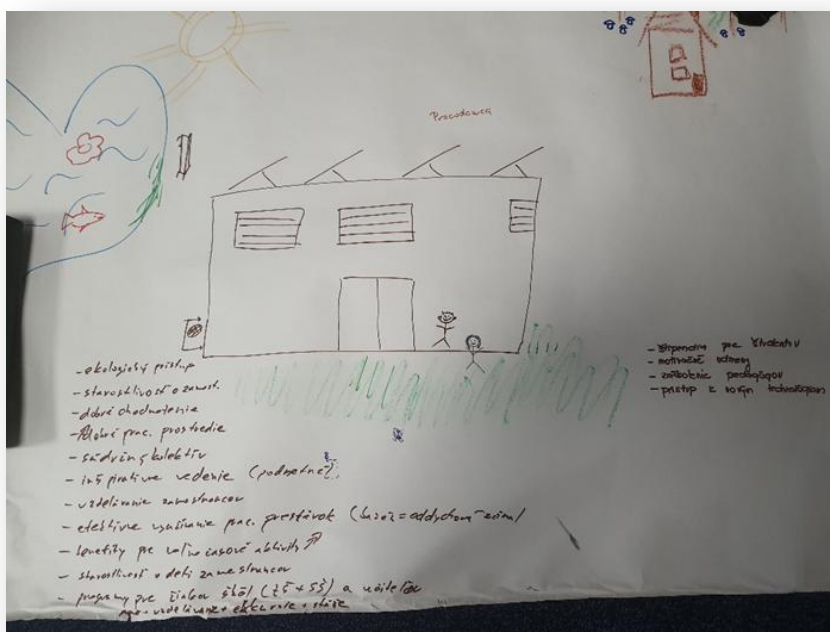 Pracodawca
- ekologický prístup
- starostlivosť o zamest.
- dobré ohodnotenie
- dobré prac. prostredie
- súdržný kolektív
- inšpiratívne vedenie (podnetné)
- vzdelávanie zamestnancov
- efektívne využívanie prac. prestávok (
- benefity pre voľno časové aktivity
- starostlivosť o deti zamestnancov
- programy pre žiakov škôl (ZŠ + SŠ) a učiteľov
vzdelávanie + exkurzie + stáže
- štipendiá pre študentov
- motivačné odmeny
- pedagógov
- prístup k novým technológiam